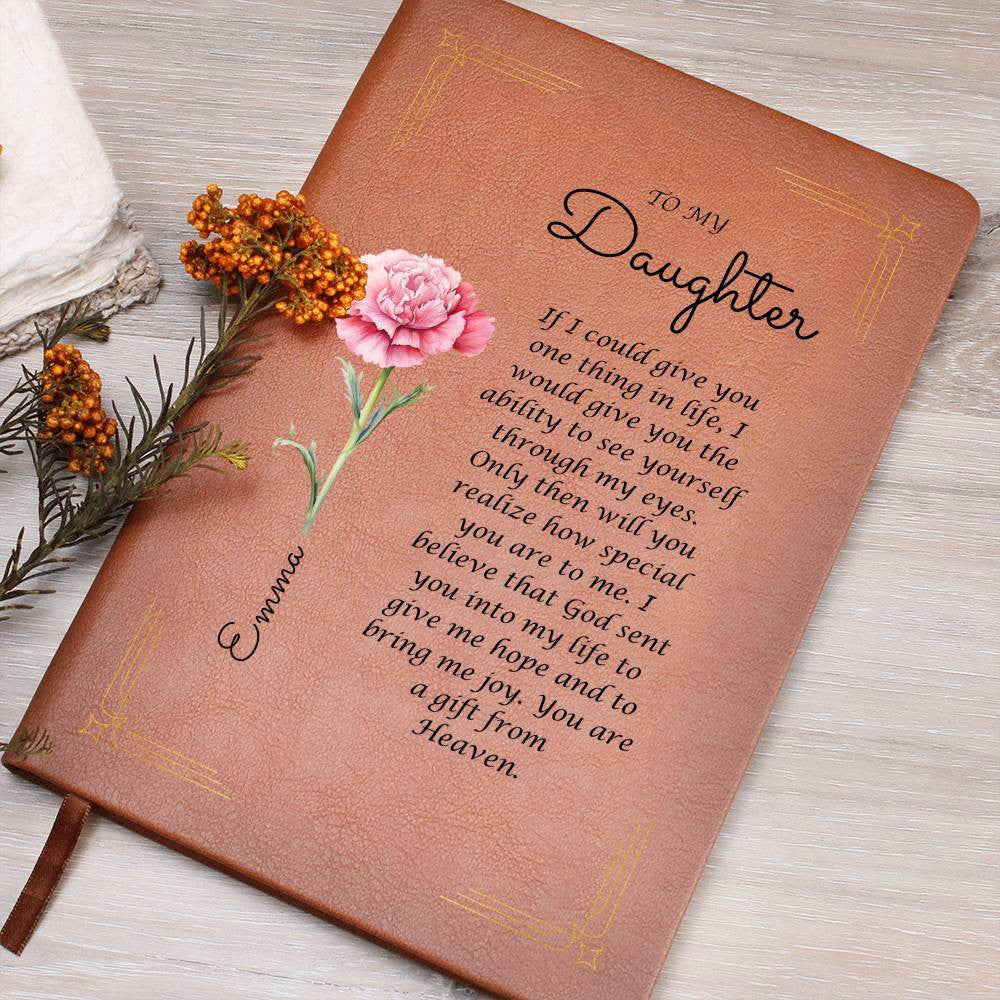 TO MY
Daughter
If I could give you
one thing in life, I
would give you the
ability to see yourself
through my eyes.
Only then will you
realize how special
you are to me. I
believe that God sent
you into my life to
give me hope and to
bring me joy. You are
a gift from
Heaven.
Emma